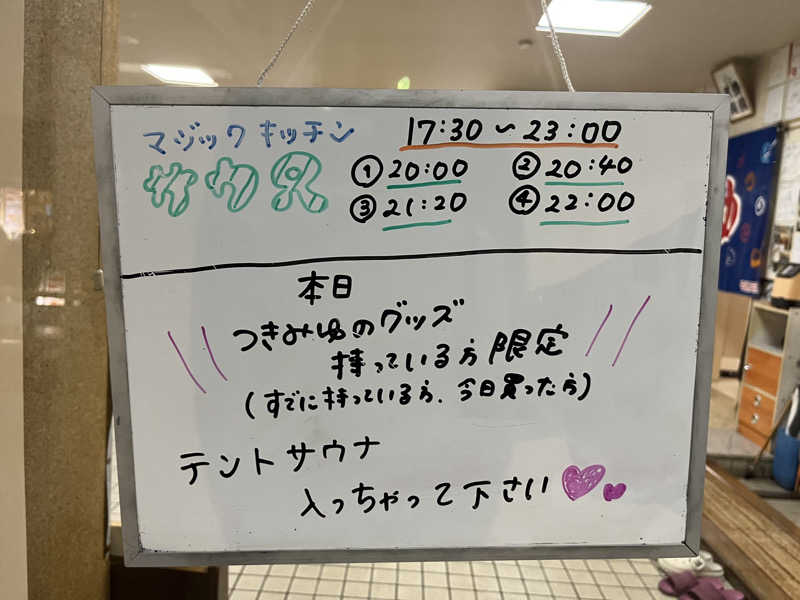 マジックキッチン
17:30〜23:00
サウス
① 20:00 ② 20:40
③ 21:20 ④ 22:00
本日
つきみ湯のグッズ
持っている方限定
(すでに持っている方、今日買った方)
テントサウナ
入っちゃって下さい